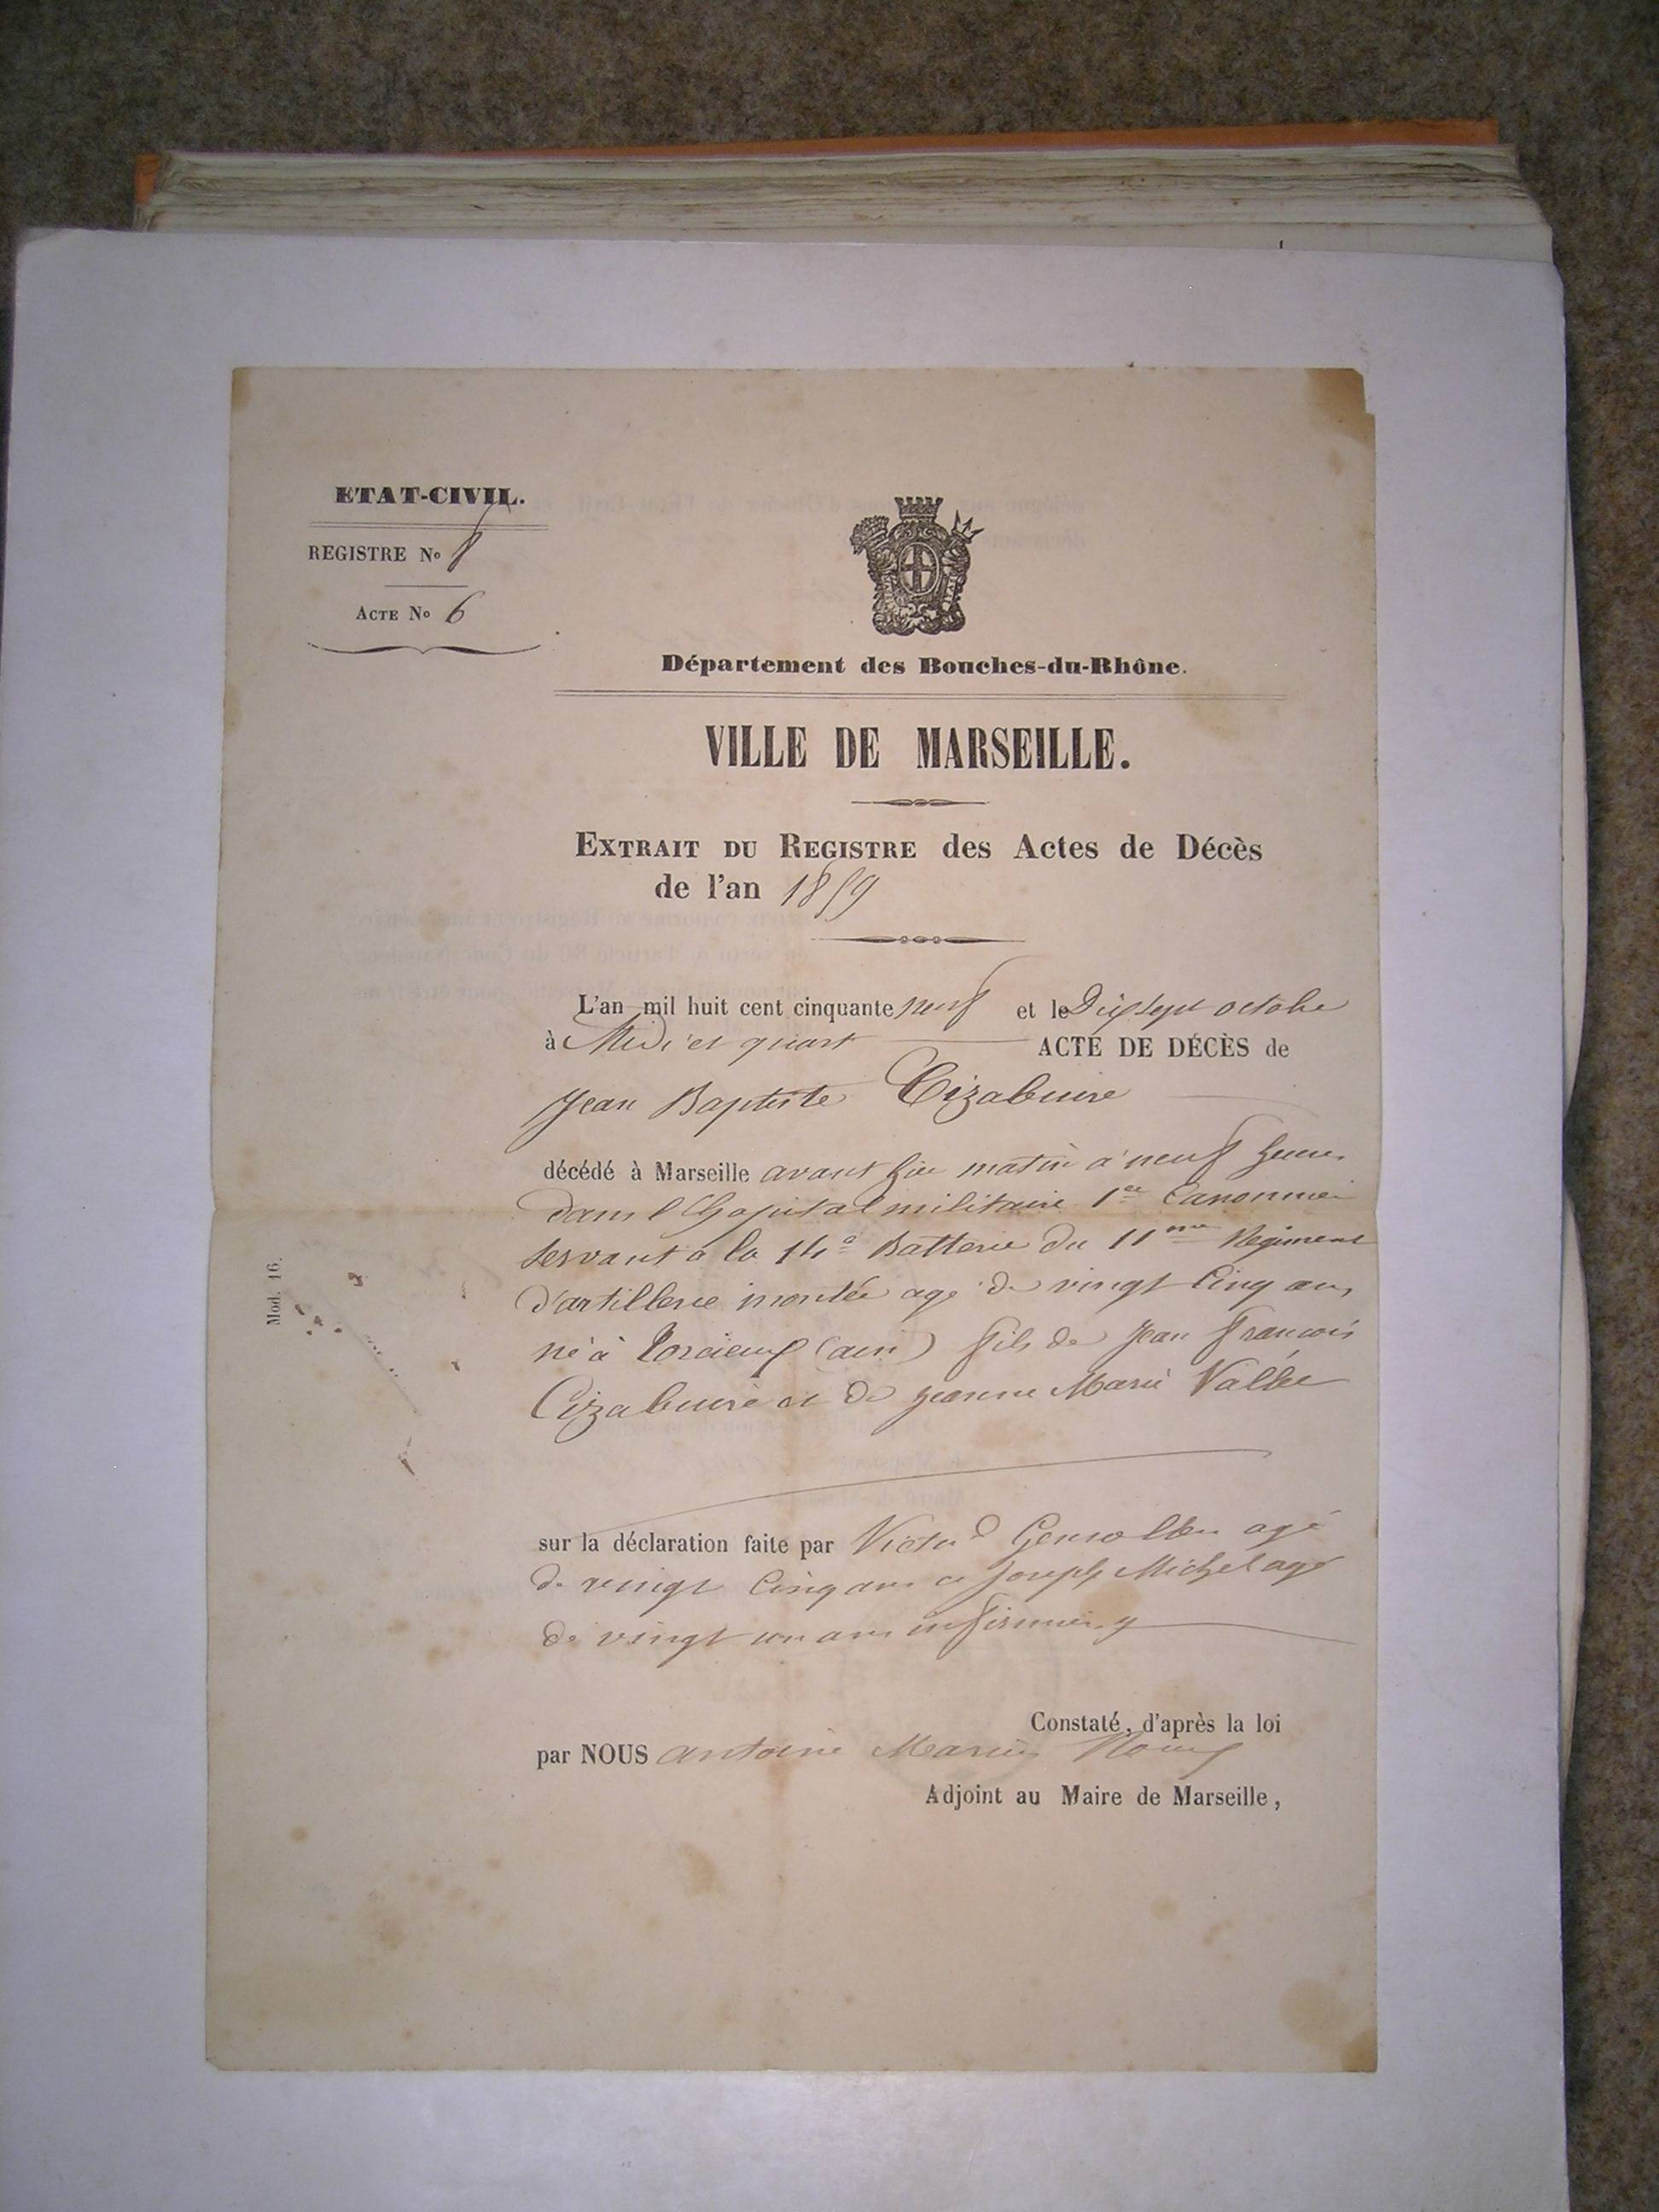 ETAT-CIVIL.
REGISTRE No 8
ACTE No 6
Département des Bouches-du-Rhône.
VILLE DE MARSEILLE.
EXTRAIT DU REGISTRE des Actes de Décès
de l'an 1859
L'an mil huit cent cinquante neuf et le Dix sept octobre
à Midi et quart ACTE DE DÉCÈS de
Jean Baptiste Cizabuire
décédé à Marseille avant hier matin à neuf heures
dans l'hopital militaire 1er Canonnier
servant à la 14e Batterie du 11me Régiment
d'artillerie montée agé de vingt cinq ans
né à (ain) fils de Jean François
Cizabuire et de Jeanne Marie Vallée
Mod. 16.
sur la déclaration faite par Victor agé
de vingt cinq ans et Joseph Michel agé
de vingt un ans infirmiers
Constaté, d'après la loi
par NOUS antoine Marius Roux
Adjoint au Maire de Marseille,